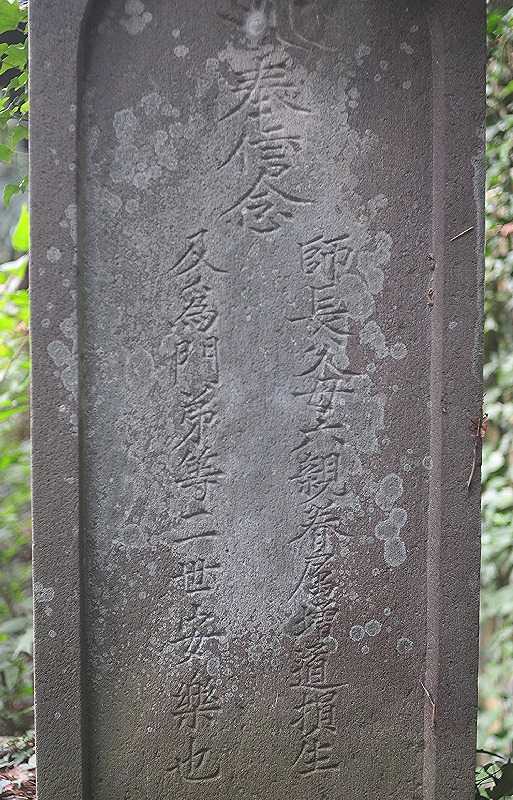 奉信念
師長父母六親眷属増道損生
及為門弟等二世安樂也